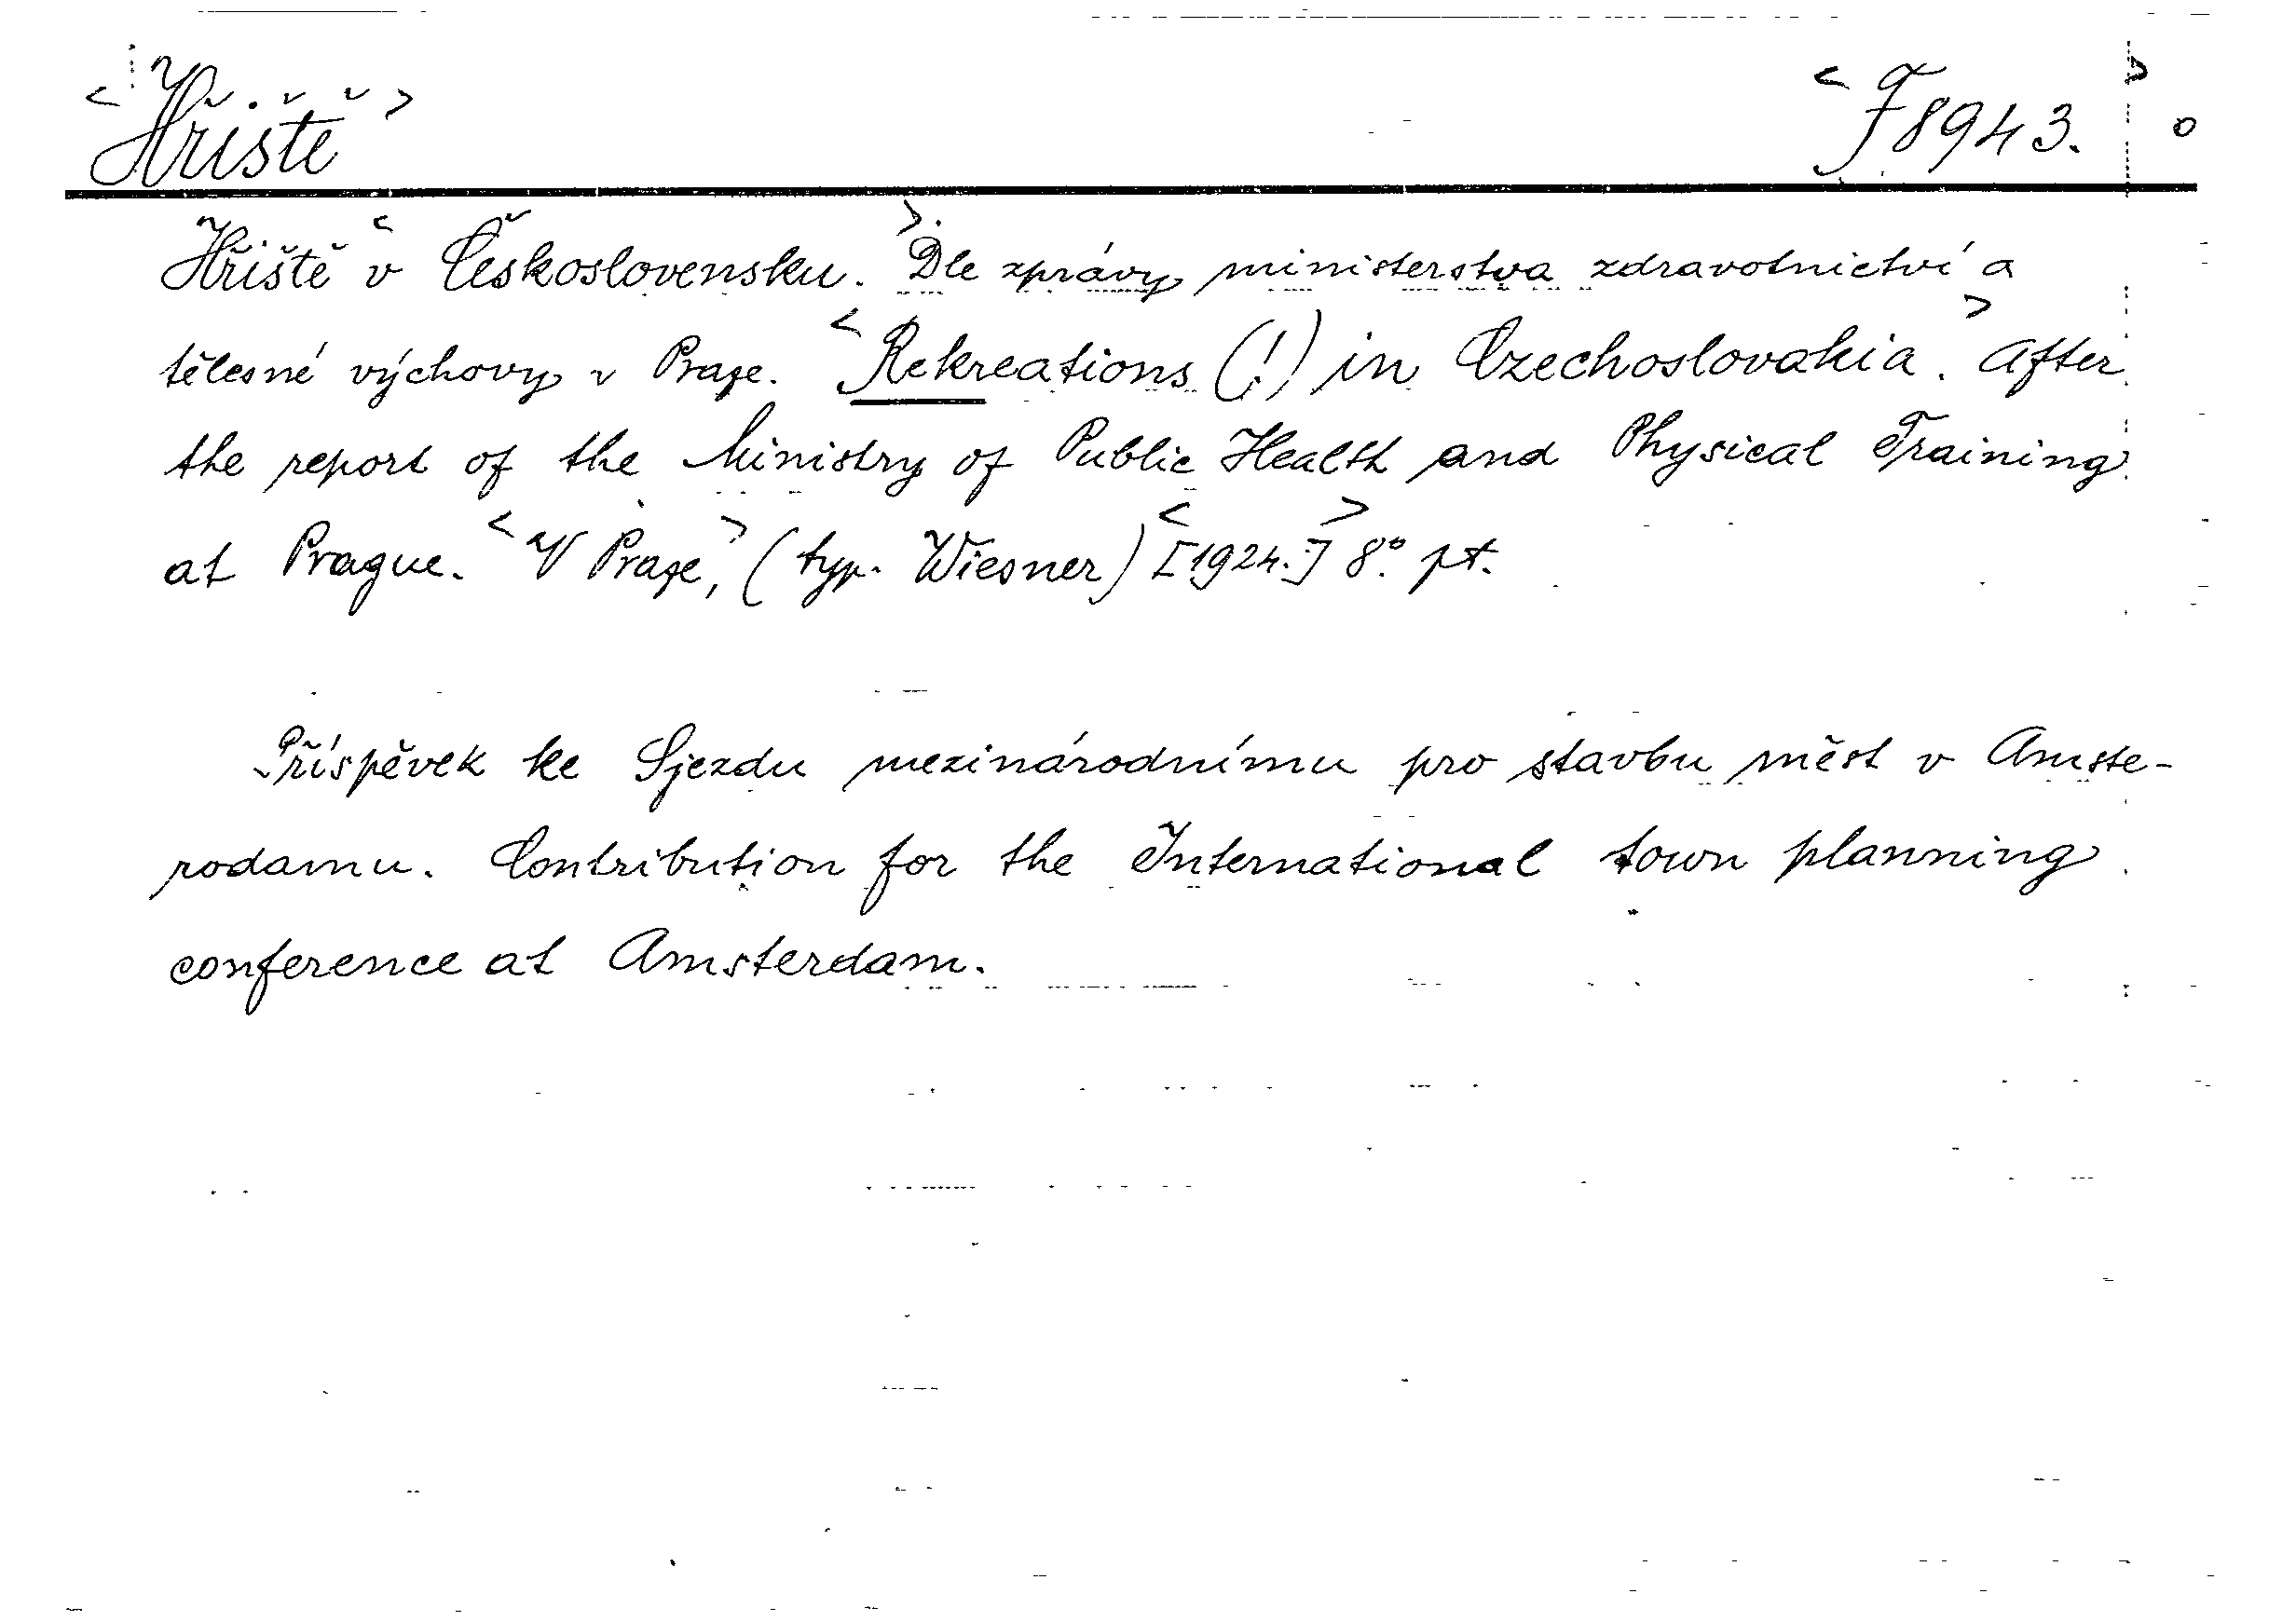 <Hřiště> <F 8943.>
Hřiště <v Československu.> Dle zprávy ministerstva zdravotnictví a
tělesné výchovy v Praze. <Rekreations (!) in Czechoslovakia.> After
the report of the Ministry of Public Health and Physical Training
at Prague. <V Praze,> (typ. Wiesner) <[1924.]> 8° pt.
Příspěvek ke Sjezdu mezinárodnímu pro stavbu měst v Amste-
rodamu. Contribution for the International town planning
conference at Amsterdam.